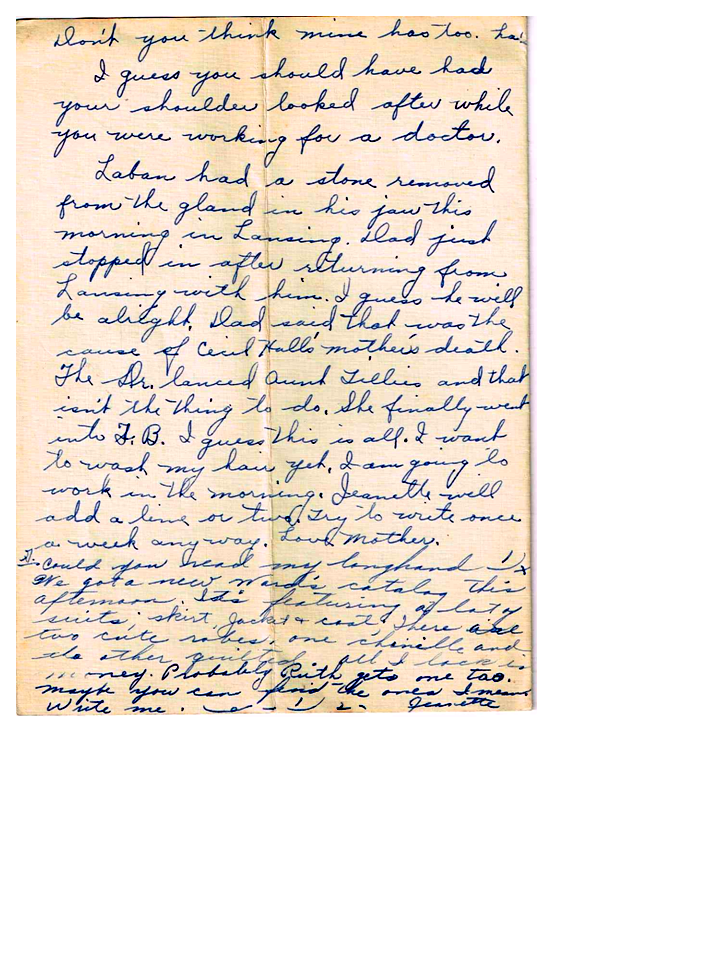 Don't you think mine has too. ha!
I guess you should have had
your shoulder looked after while
you were working for a doctor.
Laban had a stone removed
from the gland in his jaw this
morning in Lansing. Dad just
stopped in after returning from
Lansing with him. I guess he will
be alright. Dad said that was the
cause of Cecil Hall's mother's death.
The Dr. lanced Aunt Tillies and that
isn't the thing to do. She finally went
into T.B. I guess this is all. I want
to wash my hair yet. I am going to
work in the morning. Jeanette will
add a line or two. Try to write once
a week anyway. Love Mother.
Could you read my longhand
We got a new Ward's catalog this
afternoon. It's featuring a lot of
suits; skirt, Jacket & coat. There are
two cute robes, one chinelle and
the other quilted. All I lack is
money. Probably Ruth gets one too.
maybe you can find the ones I mean.
Write me. Jeanette